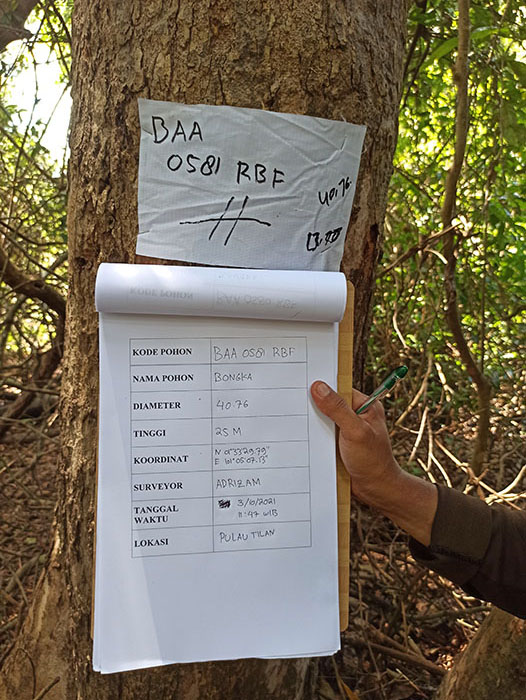 BAA
0581 RBF
40.76
KODE POHON BAA 0581 RBF
NAMA POHON BONGKA
DIAMETER 40.76
TINGGI 25 M
KOORDINAT N 0°33'29.79"
E 101°05'07.13"
SURVEYOR ADRIZAM
TANGGAL WAKTU 3/10/2021
11:47 WIB
LOKASI PULAU TILAN